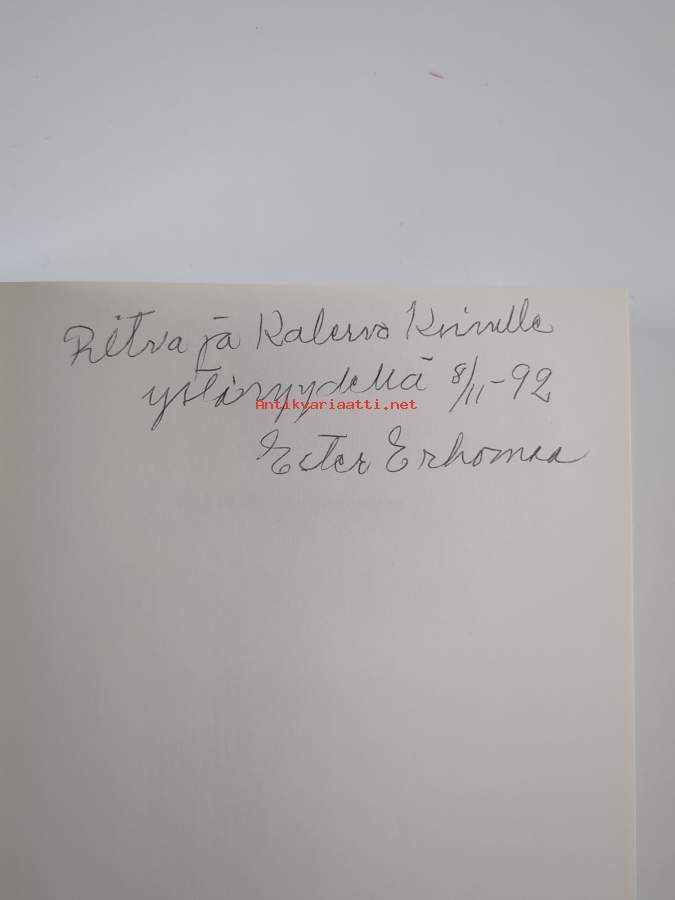 Ritva ja Kalervo Kivelle
ystävyydellä 8/11-92
Antikvariaatti.net
Ester Erhomaa